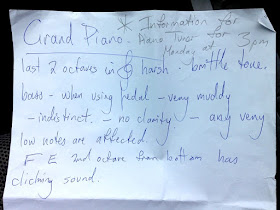 * Information for
Grand Piano. Piano Tuner for 3pm
Monday at
last 2 octaves in harsh. brittle tone.
bass - when using pedal - very muddy
- indistinct - no clarity - any very
low notes are affected.
F E 2nd octave from bottom has
clicking sound.